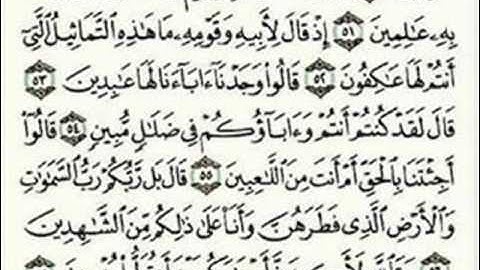 بِهِۦ عَٰلِمِينَ ٥١ إِذْ قَالَ لِأَبِيهِ وَقَوْمِهِۦ مَا هَٰذِهِ ٱلتَّمَاثِيلُ ٱلَّتِىٓ
أَنتُمْ لَهَا عَٰكِفُونَ ٥٢ قَالُوا۟ وَجَدْنَآ ءَابَآءَنَا لَهَا عَٰبِدِينَ ٥٣
قَالَ لَقَدْ كُنتُمْ أَنتُمْ وَءَابَآؤُكُمْ فِى ضَلَٰلٍ مُّبِينٍ ٥٤ قَالُوٓا۟
أَجِئْتَنَا بِٱلْحَقِّ أَمْ أَنتَ مِنَ ٱللَّٰعِبِينَ ٥٥ قَالَ بَل رَّبُّكُمْ رَبُّ ٱلسَّمَٰوَٰتِ
وَٱلْأَرْضِ ٱلَّذِى فَطَرَهُنَّ وَأَنَا۠ عَلَىٰ ذَٰلِكُم مِّنَ ٱلشَّٰهِدِينَ